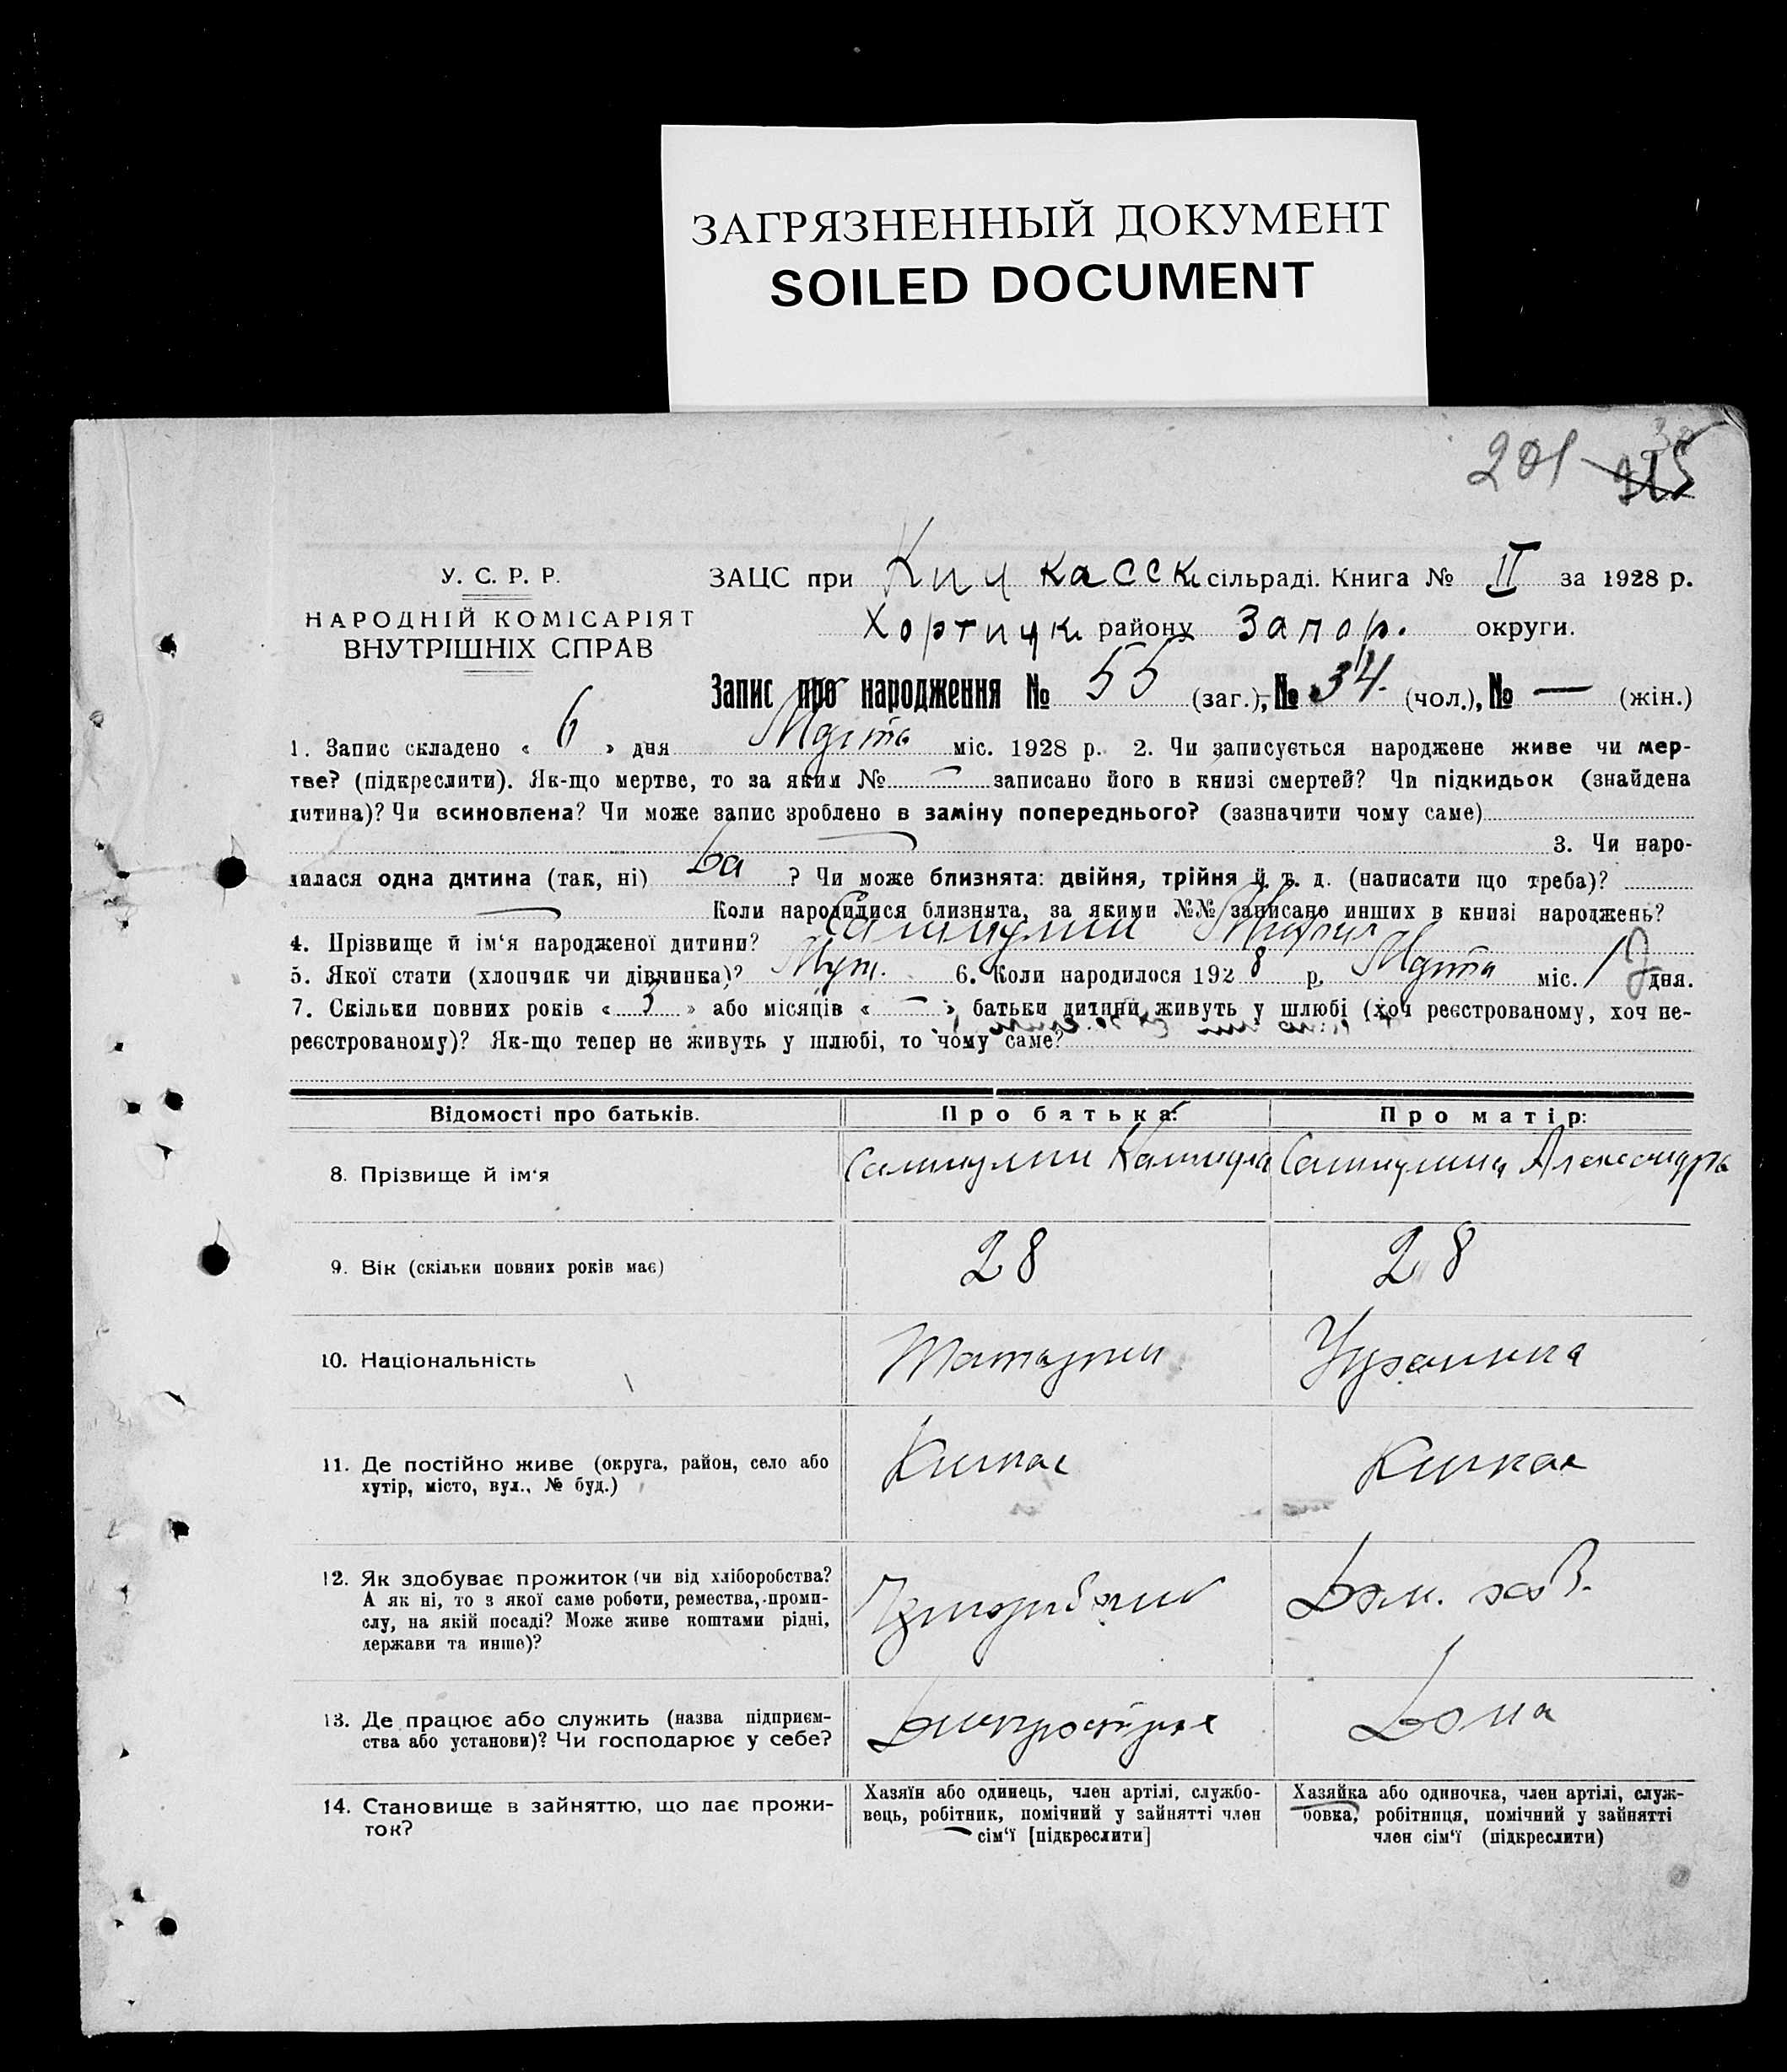 ЗАГРЯЗНЕННЫЙ ДОКУМЕНТ
SOILED DOCUMENT
201 315
У. С. Р. Р.
НАРОДНІЙ КОМІСАРІЯТ
ВНУТРІШНІХ СПРАВ
ЗАЦС при Кичкасск сільраді. Книга № II за 1928 р.
Хортицк району Запор. округи.
Запис про народження № 55 (заг.), № 34. (чол.), № — (жін.)
1. Запис складено « 6 » дня Марта міс. 1928 р. 2. Чи записується народжене живе чи мер-
тве? (підкреслити). Як-що мертве, то за яким № — записано його в книзі смертей? Чи підкидьок (знайдена
дитина)? Чи всиновлена? Чи може запис зроблено в заміну попереднього? (зазначити чому саме)
3. Чи наро-
дилася одна дитина (так, ні) Да ? Чи може близнята: двійня, трійня й т. д. (написати що треба)?
— Коли народилися близнята, за якими №№ записано инших в книзі народжень?
4. Прізвище й ім‘я народженої дитини?
5. Якої стати (хлопчик чи дівчинка)? Муж. 6. Коли народилося 1928 р. Марта міс. 1 дня.
7. Скільки повних років « 3 » або місяців « — » батьки дитини живуть у шлюбі (хоч реєстрованому, хоч не-
реєстрованому)? Як-що тепер не живуть у шлюбі, то чому саме?
Відомості про батьків. Про батька: Про матір:
8. Прізвище й ім‘я Александра
9. Вік (скільки повних років має) 28 28
10. Національність Татарин Украинка
11. Де постійно живе (округа, район, село або Кичкас Кичкас
хутір, місто, вул., № буд.)
12. Як здобуває прожиток (чи від хліборобства? Чернорабочий Дом. хоз.
А як ні, то з якої саме роботи, ремества, проми-
слу, на якій посаді? Може живе коштами рідні,
держави та инше)?
13. Де працює або служить (назва підприєм- Днепрострое Дома
ства або установи)? Чи господарює у себе?
14. Становище в зайняттю, що дає прожи-
ток?
Хазяїн або одинець, член артілі, службо-
вець, робітник, помічний у зайнятті член
сім‘ї [підкреслити]
Хазяйка або одиночка, член артілі, служ-
бовка, робітниця, помічний у зайнятті
член сім‘ї (підкреслити)